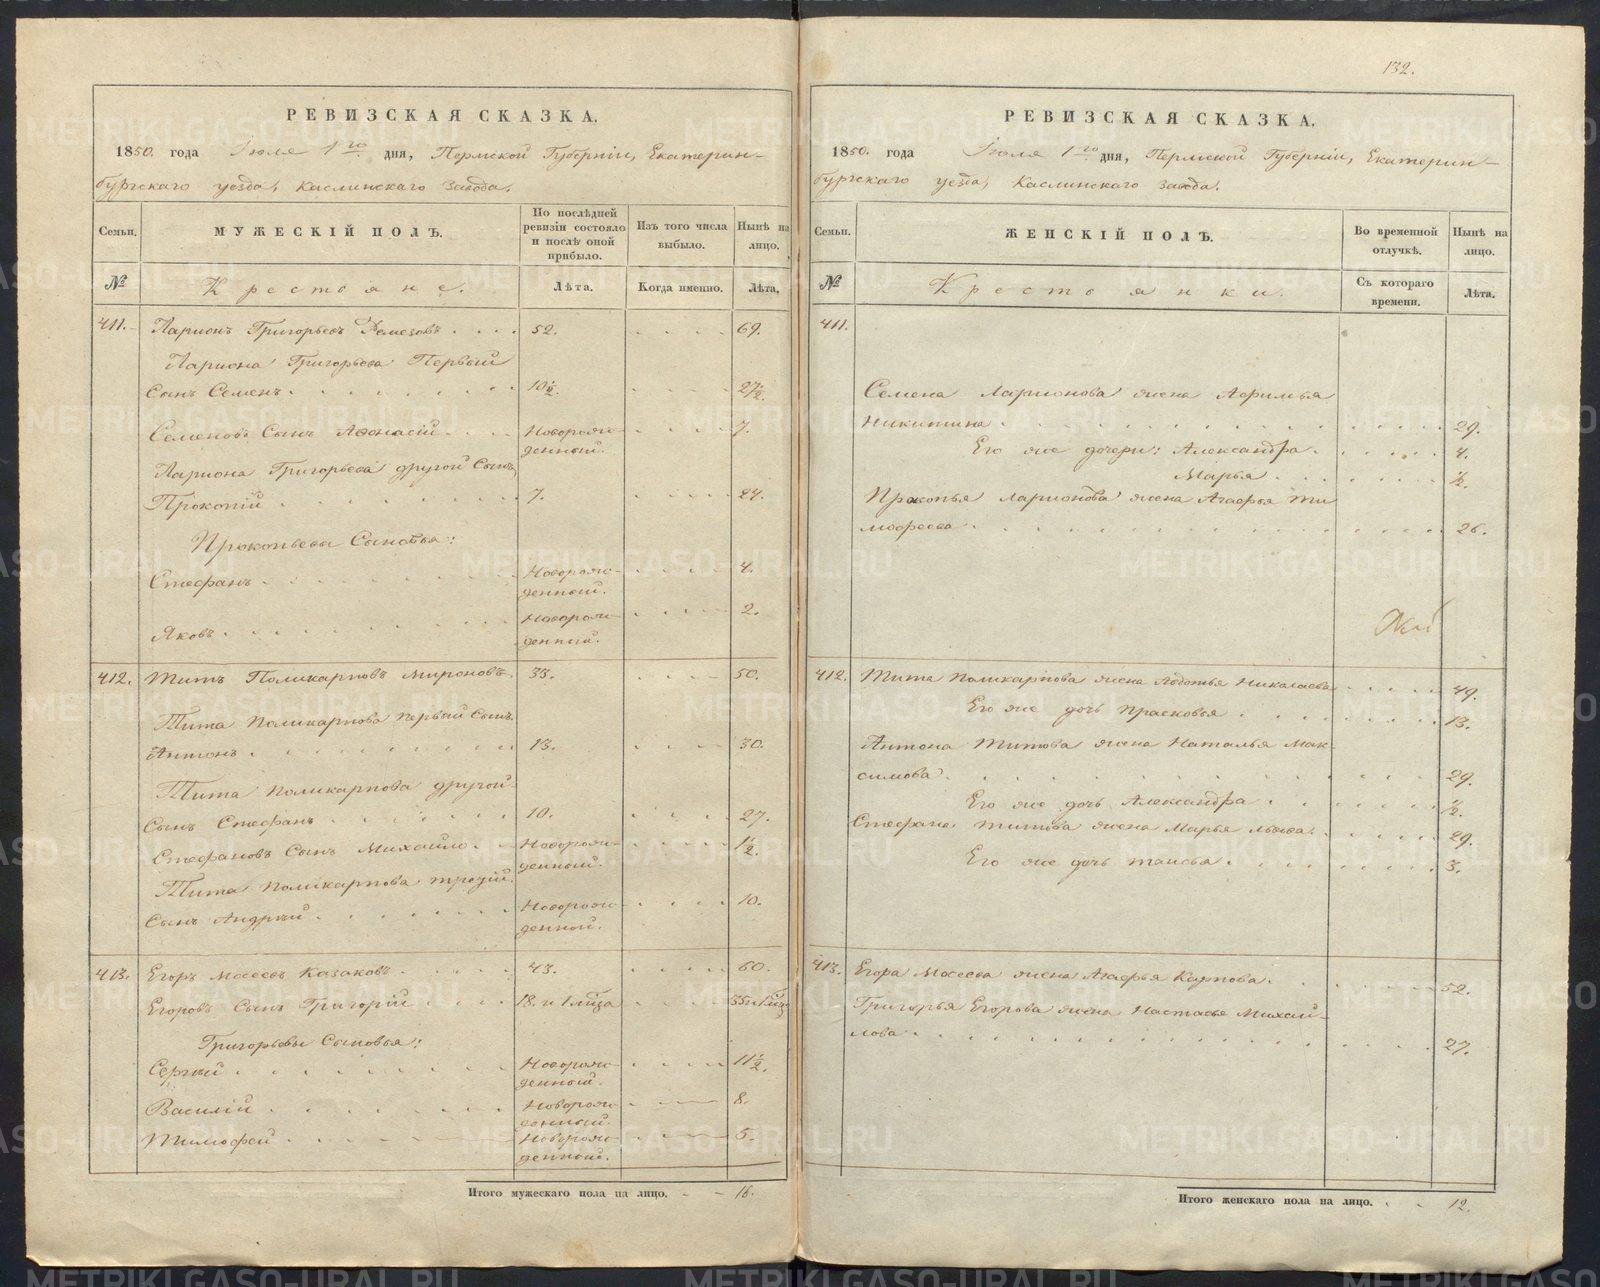 132.
РЕВИЗСКАЯ СКАЗКА.
1850. года Іюля 1го дня, Пермской Губерніи, Екатерин-
бургскаго уезда, Каслинскаго Завода.
Семьи.
МУЖЕСКІЙ ПОЛЪ.
По послѣдней ревизіи состояло и послѣ оной прибыло.
Изъ того числа выбыло.
Нынѣ на лицо.
№
Крестьяне.
Лѣта.
Когда именно.
Лѣта.
411. Ларионъ Григорьевъ Ремезовъ 52. 69.
Лариона Григорьева Первый
Сынъ Семенъ 10½. 27½.
Семеновъ Сынъ Афонасій Новорож- 7.
денный.
Лариона Григорьева другой Сынъ
Прокопій 7. 24.
Прокопьевы Сыновья:
Стефанъ Новорож- 4.
денный.
Яковъ Новорож- 2.
денный.
412. Титъ Поликарповъ Мироновъ 33. 50.
Тита Поликарпова первый Сынъ
Антонъ 13. 30.
Тита Поликарпова другой
Сынъ Стефанъ 10. 27.
Стефановъ Сынъ Михайло Новорож- ½.
денный.
Тита Поликарпова третій
Сынъ Андрей Новорож- 10.
денной.
413. Егоръ Мосеевъ Казаковъ 43. 60.
Егоровъ Сынъ Григорій 18. и
Григорьевы Сыновья:
Сергий Новорож- 11½.
денный.
Василій Новорож- 8.
денный
Тимофей Новорож- 5.
денный.
Итого мужескаго пола на лицо. 16.
РЕВИЗСКАЯ СКАЗКА.
1850. года Іюля 1го дня, Пермской Губерніи, Екатерин-
бургскаго уезда, Каслинскаго Завода.
Семьи.
ЖЕНСКІЙ ПОЛЪ.
Во временной отлучкѣ.
Нынѣ на лицо.
№
Крестьянки.
Съ котораго времени.
Лѣта.
411.
Семена Ларионова жена Афимья
Никитина 29.
Его же дочери: Александра 4.
Марья ½.
Прокопья Ларионова жена Агафья Ти
мофеева 26.
412. Тита Поликарпова жена Авдотья Николаева 49.
Его же дочь Прасковья 13.
Антона Титова жена Наталья Мак-
симова 29.
Его же дочь Александра ½.
Стефана Титова жена Марья Львова 29.
Его же дочь Таисья 3.
413. Егора Мосеева жена Агафья Карпова 52.
Григорья Егорова жена Настасья Михай-
лова 27.
Итого женскаго пола на лицо. 12.
METRIKI.GASO-URAL.RU